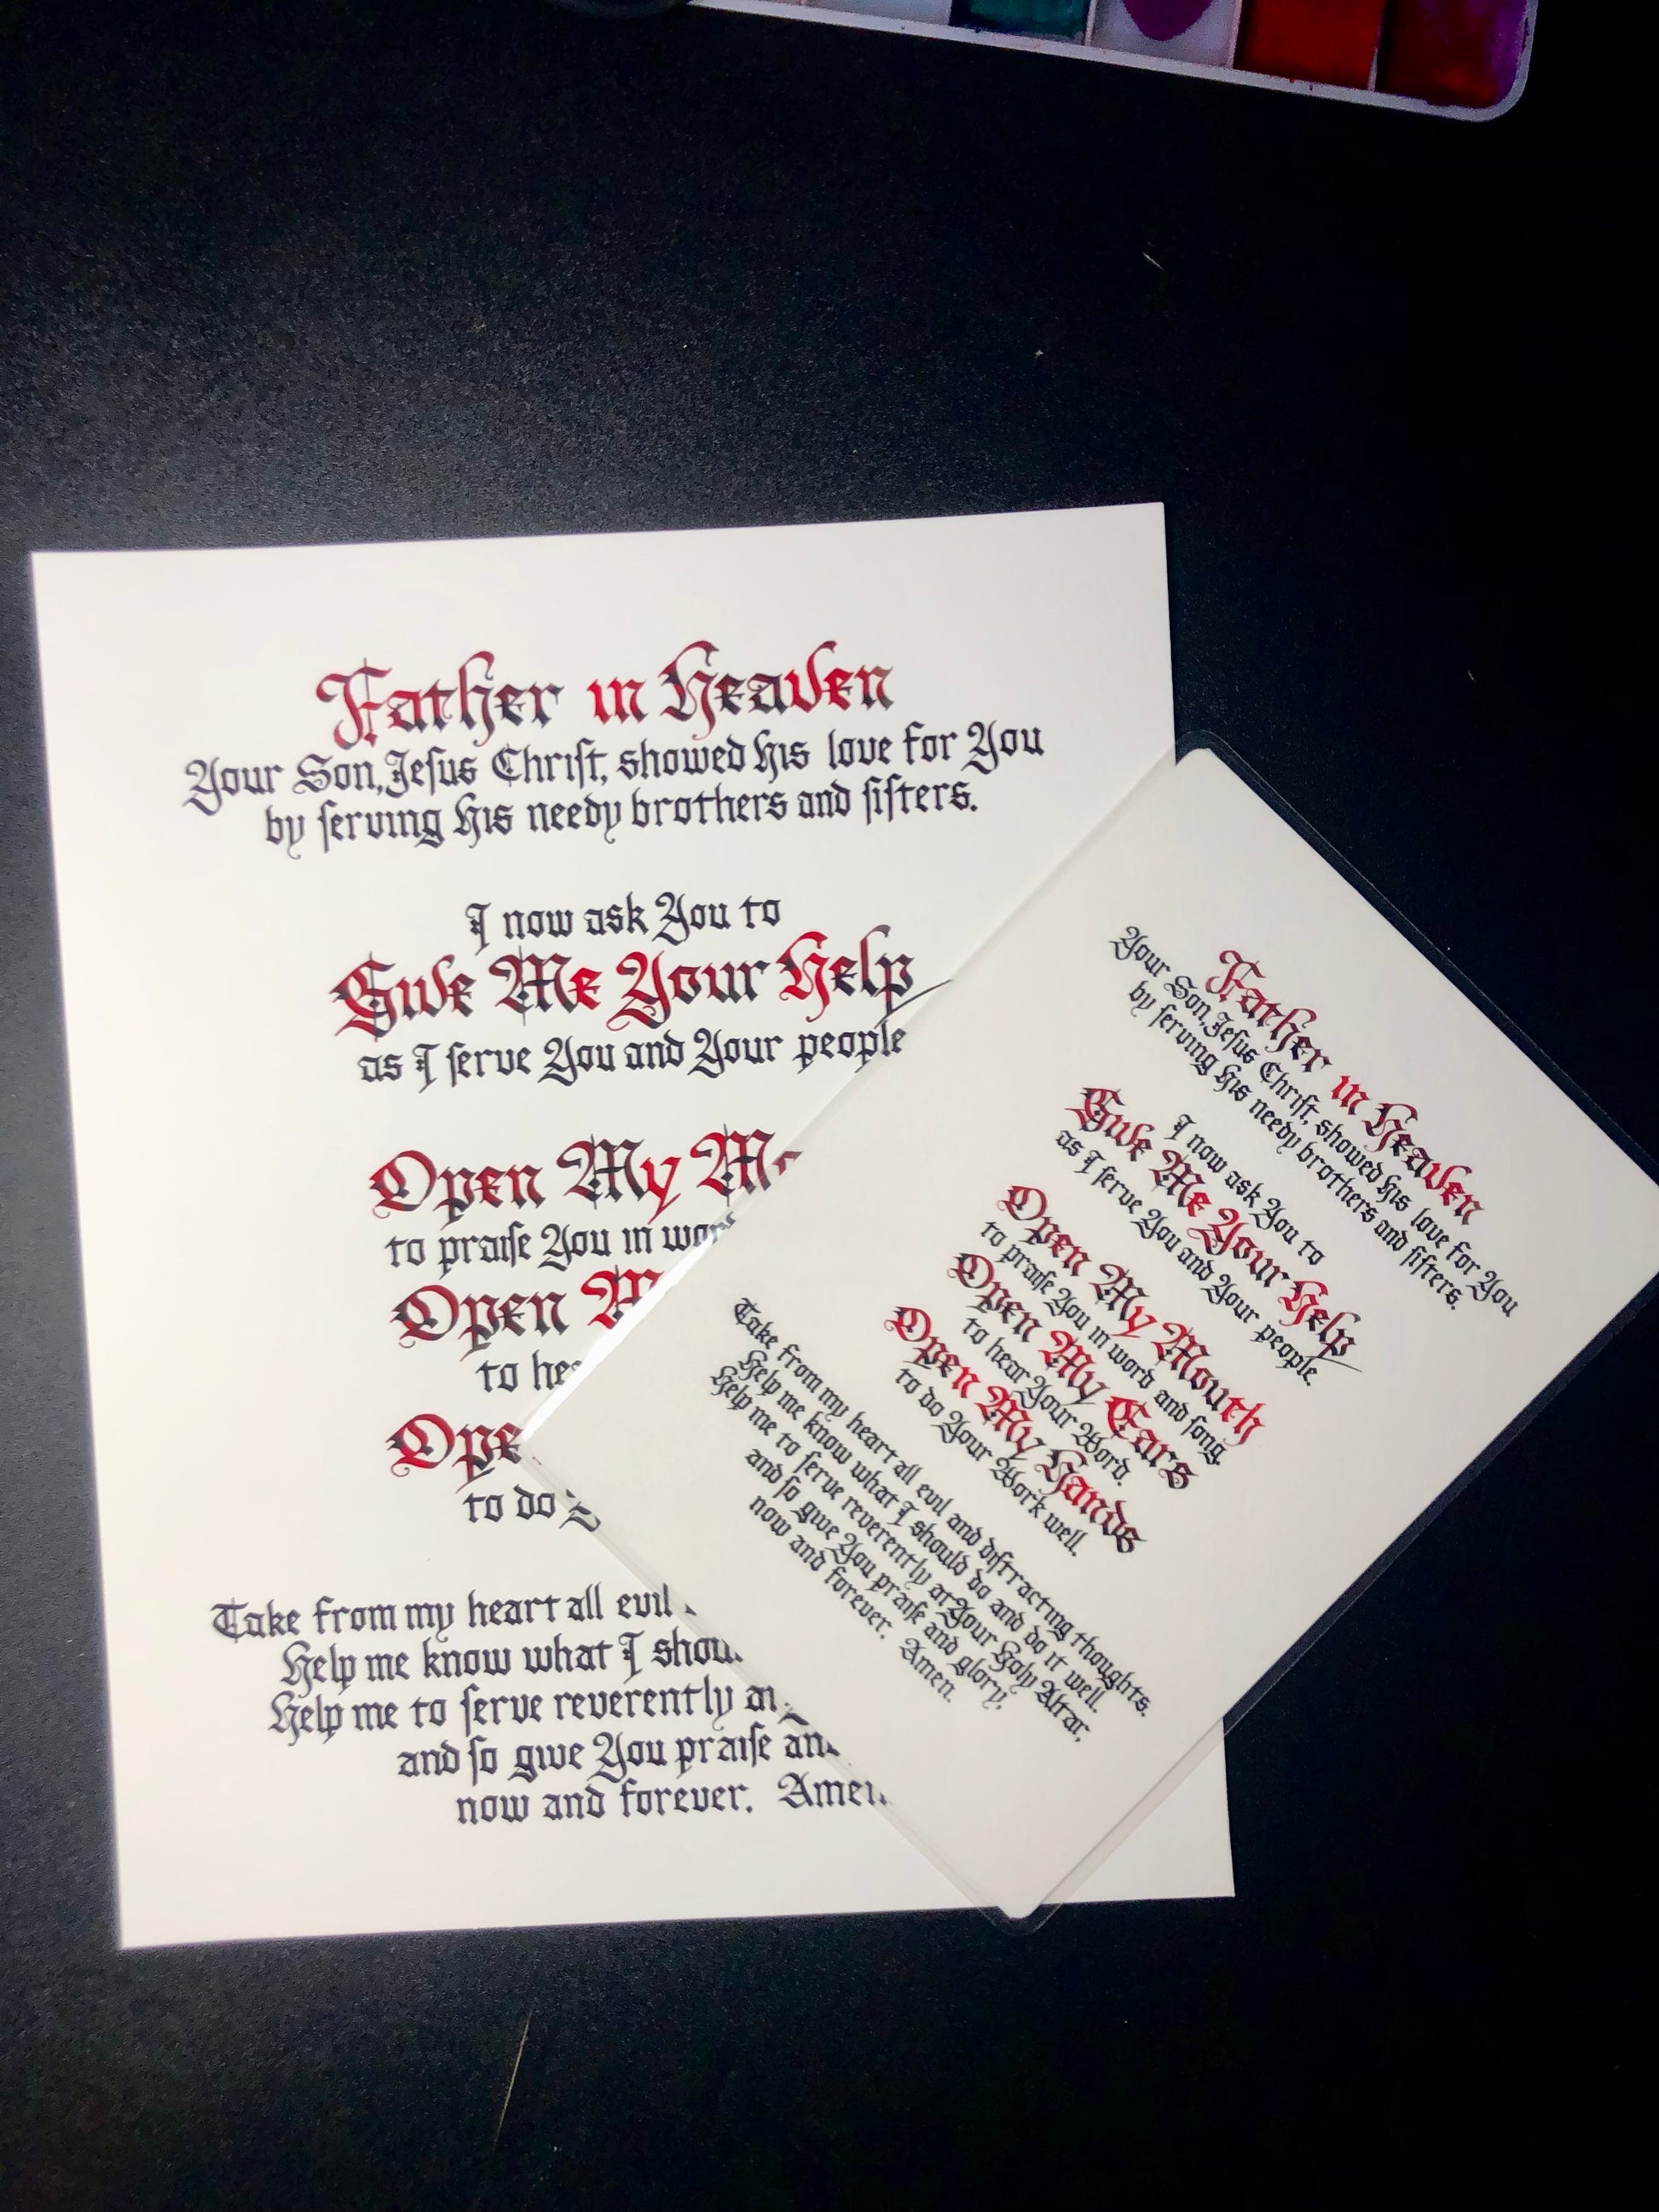 Father in Heaven
Your Son, Jeſus Chriſt, showed His love for You
by ſerving His needy brothers and ſiſters.
I now ask You to
Give Me Your Help
as I ſerve You and Your people
Open My
to praiſe You in
Open
to
to do
Take from my heart all evil
Help me know what I
Help me to ſerve reverently
and ſo give You praiſe
now and forever. Amen
Father in Heaven
Your Son, Jeſus Chriſt, showed His love for You
by ſerving His needy brothers and ſiſters.
I now ask You to
Give Me Your Help
as I ſerve You and Your people.
Open My Mouth
to praiſe You in word and ſong.
Open My Ears
to hear Your Word.
Open My Hands
to do Your Work well.
Take from my heart all evil and diſtracting thoughts.
Help me know what I should do and do it well.
Help me to ſerve reverently at Your Holy Altar,
and ſo give You praiſe and glory,
now and forever. Amen.